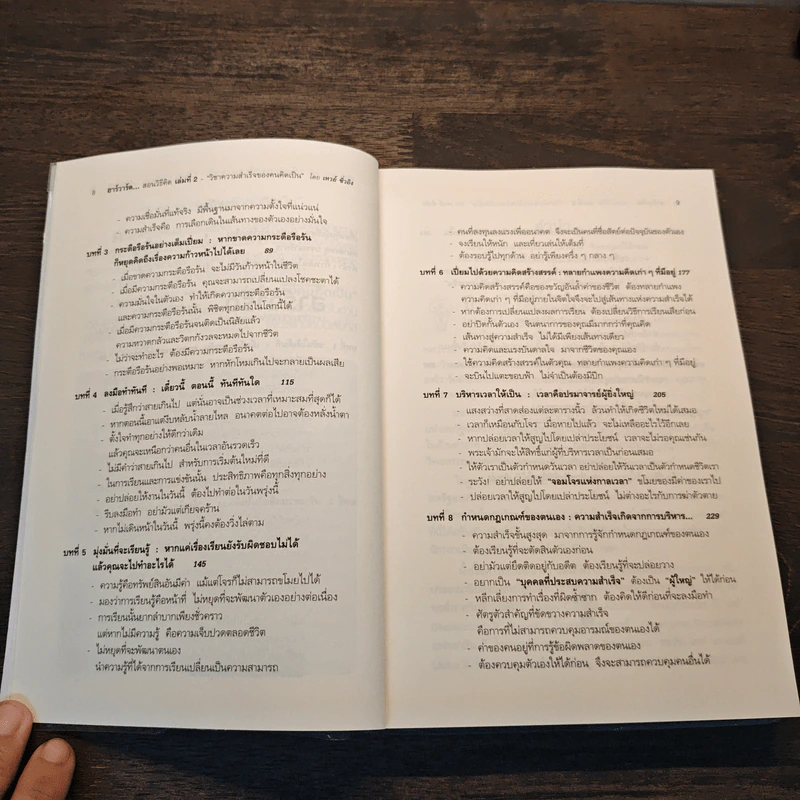 8 ฮาร์วาร์ด... สอนวิธีคิด เล่มที่ 2 - "วิชาความสำเร็จของคนคิดเป็น" โดย เหวย์ ซิ่วอิง
- ความเชื่อมั่นที่แท้จริง มีพื้นฐานมาจากความตั้งใจที่แน่วแน่
- ความสำเร็จคือ การเลือกเดินในเส้นทางของตัวเองอย่างมั่นใจ
บทที่ 3 กระตือรือร้นอย่างเต็มเปี่ยม : หากขาดความกระตือรือร้น
ก็หยุดคิดถึงเรื่องความก้าวหน้าไปได้เลย 89
- เมื่อขาดความกระตือรือร้น จะไม่มีวันก้าวหน้าในชีวิต
- เมื่อมีความกระตือรือร้น คุณจะสามารถเปลี่ยนแปลงโชคชะตาได้
- ความมั่นใจในตัวเอง ทำให้เกิดความกระตือรือร้น
และความกระตือรือร้นนั้น พิชิตทุกอย่างในโลกนี้ได้
- เมื่อมีความกระตือรือร้นจนติดเป็นนิสัยแล้ว
ความหวาดกลัวและวิตกกังวลจะหมดไปจากชีวิต
- ไม่ว่าจะทำอะไร ต้องมีความกระตือรือร้น
- กระตือรือร้นอย่างพอเหมาะ หากหักโหมเกินไปจะกลายเป็นผลเสีย
บทที่ 4 ลงมือทำทันที : เดี๋ยวนี้ ตอนนี้ ทันทีทันใด 115
- เมื่อรู้สึกว่าสายเกินไป แต่นั่นอาจเป็นช่วงเวลาที่เหมาะสมที่สุดก็ได้
- หากตอนนี้เอาแต่งีบหลับน้ำลายไหล อนาคตต่อไปอาจต้องหลั่งน้ำตา
- ตั้งใจทำทุกอย่างให้ดีกว่าเดิม
แล้วคุณจะเหนือกว่าคนอื่นในเวลาอันรวดเร็ว
- ไม่มีคำว่าสายเกินไป สำหรับการเริ่มต้นใหม่ที่ดี
- ในการเรียนและการแข่งขันนั้น ประสิทธิภาพคือทุกสิ่งทุกอย่าง
- อย่าปล่อยให้งานในวันนี้ ต้องไปทำต่อในวันพรุ่งนี้
- รีบลงมือทำ อย่ามัวแต่เกียจคร้าน
- หากไม่เดินหน้าในวันนี้ พรุ่งนี้คงต้องวิ่งไล่ตาม
บทที่ 5 มุ่งมั่นที่จะเรียนรู้ : หากแค่เรื่องเรียนยังรับผิดชอบไม่ได้
แล้วคุณจะไปทำอะไรได้ 145
- ความรู้คือทรัพย์สินอันมีค่า แม้แต่โจรก็ไม่สามารถขโมยไปได้
- มองว่าการเรียนรู้คือหน้าที่ ไม่หยุดที่จะพัฒนาตัวเองอย่างต่อเนื่อง
- การเรียนนั้นยากลำบากเพียงชั่วคราว
แต่หากไม่มีความรู้ คือความเจ็บปวดตลอดชีวิต
- ไม่หยุดที่จะพัฒนาตนเอง
นำความรู้ที่ได้จากการเรียนเปลี่ยนเป็นความสามารถ
9
- คนที่ลงทุนลงแรงเพื่ออนาคต จึงจะเป็นคนที่ซื่อสัตย์ต่อปัจจุบันของตัวเอง
- จงเรียนให้หนัก และเที่ยวเล่นให้เต็มที่
- ต้องรอบรู้ในทุกด้าน อย่ารู้เพียงครึ่ง ๆ กลาง ๆ
บทที่ 6 เปี่ยมไปด้วยความคิดสร้างสรรค์ : ทลายกำแพงความคิดเก่า ๆ ที่มีอยู่ 177
- ความคิดสร้างสรรค์คือของขวัญอันล้ำค่าของชีวิต ต้องทลายกำแพง
ความคิดเก่า ๆ ที่มีอยู่ภายในจิตใจจึงจะไปสู่เส้นทางแห่งความสำเร็จได้
- หากต้องการเปลี่ยนแปลงผลการเรียน ต้องเปลี่ยนวิธีการเรียนเสียก่อน
- อย่าปิดกั้นตัวเอง จินตนาการของคุณมีมากกว่าที่คุณคิด
- เส้นทางสู่ความสำเร็จ ไม่ได้มีเพียงเส้นทางเดียว
- ความคิดและแรงบันดาลใจ มาจากชีวิตของคุณเอง
- ใช้ความคิดสร้างสรรค์ในตัวคุณ ทลายกำแพงความคิดเก่า ๆ ที่มีอยู่
- จะบินไปแตะขอบฟ้า ไม่จำเป็นต้องมีปีก
บทที่ 7 บริหารเวลาให้เป็น : เวลาคือปรมาจารย์ผู้ยิ่งใหญ่ 205
- แสงสว่างที่สาดส่องแต่ละตารางนิ้ว ล้วนทำให้เกิดชีวิตใหม่ได้เสมอ
- เวลาก็เหมือนกับโจร เมื่อหายไปแล้ว จะไม่เหลืออะไรไว้อีกเลย
- หากปล่อยเวลาให้สูญไปโดยเปล่าประโยชน์ เวลาจะไม่รอคุณเช่นกัน
- พระเจ้ามักจะให้สิทธิ์แก่ผู้ที่บริหารเวลาเป็นก่อนเสมอ
- ให้ตัวเราเป็นตัวกำหนดวันเวลา อย่าปล่อยให้วันเวลาเป็นตัวกำหนดชีวิตเรา
- ระวัง! อย่าปล่อยให้ "จอมโจรแห่งกาลเวลา" ขโมยของมีค่าของเราไป
- ปล่อยเวลาให้สูญไปโดยเปล่าประโยชน์ ไม่ต่างอะไรกับการฆ่าตัวตาย
บทที่ 8 กำหนดกฎเกณฑ์ของตนเอง : ความสำเร็จเกิดจากการบริหาร... 229
- ความสำเร็จขั้นสูงสุด มาจากการรู้จักกำหนดกฎเกณฑ์ของตนเอง
- ต้องเรียนรู้ที่จะตัดสินตัวเองก่อน
- อย่ามัวแต่ยึดติดอยู่กับอดีต ต้องเรียนรู้ที่จะปล่อยวาง
- อยากเป็น "บุคคลที่ประสบความสำเร็จ" ต้องเป็น "ผู้ใหญ่" ให้ได้ก่อน
- หลีกเลี่ยงการทำเรื่องที่ผิดซ้ำซาก ต้องคิดให้ดีก่อนที่จะลงมือทำ
- ศัตรูตัวสำคัญที่ขัดขวางความสำเร็จ
คือการที่ไม่สามารถควบคุมอารมณ์ของตนเองได้
- ค่าของคนอยู่ที่การรู้ข้อผิดพลาดของตนเอง
- ต้องควบคุมตัวเองให้ได้ก่อน จึงจะสามารถควบคุมคนอื่นได้